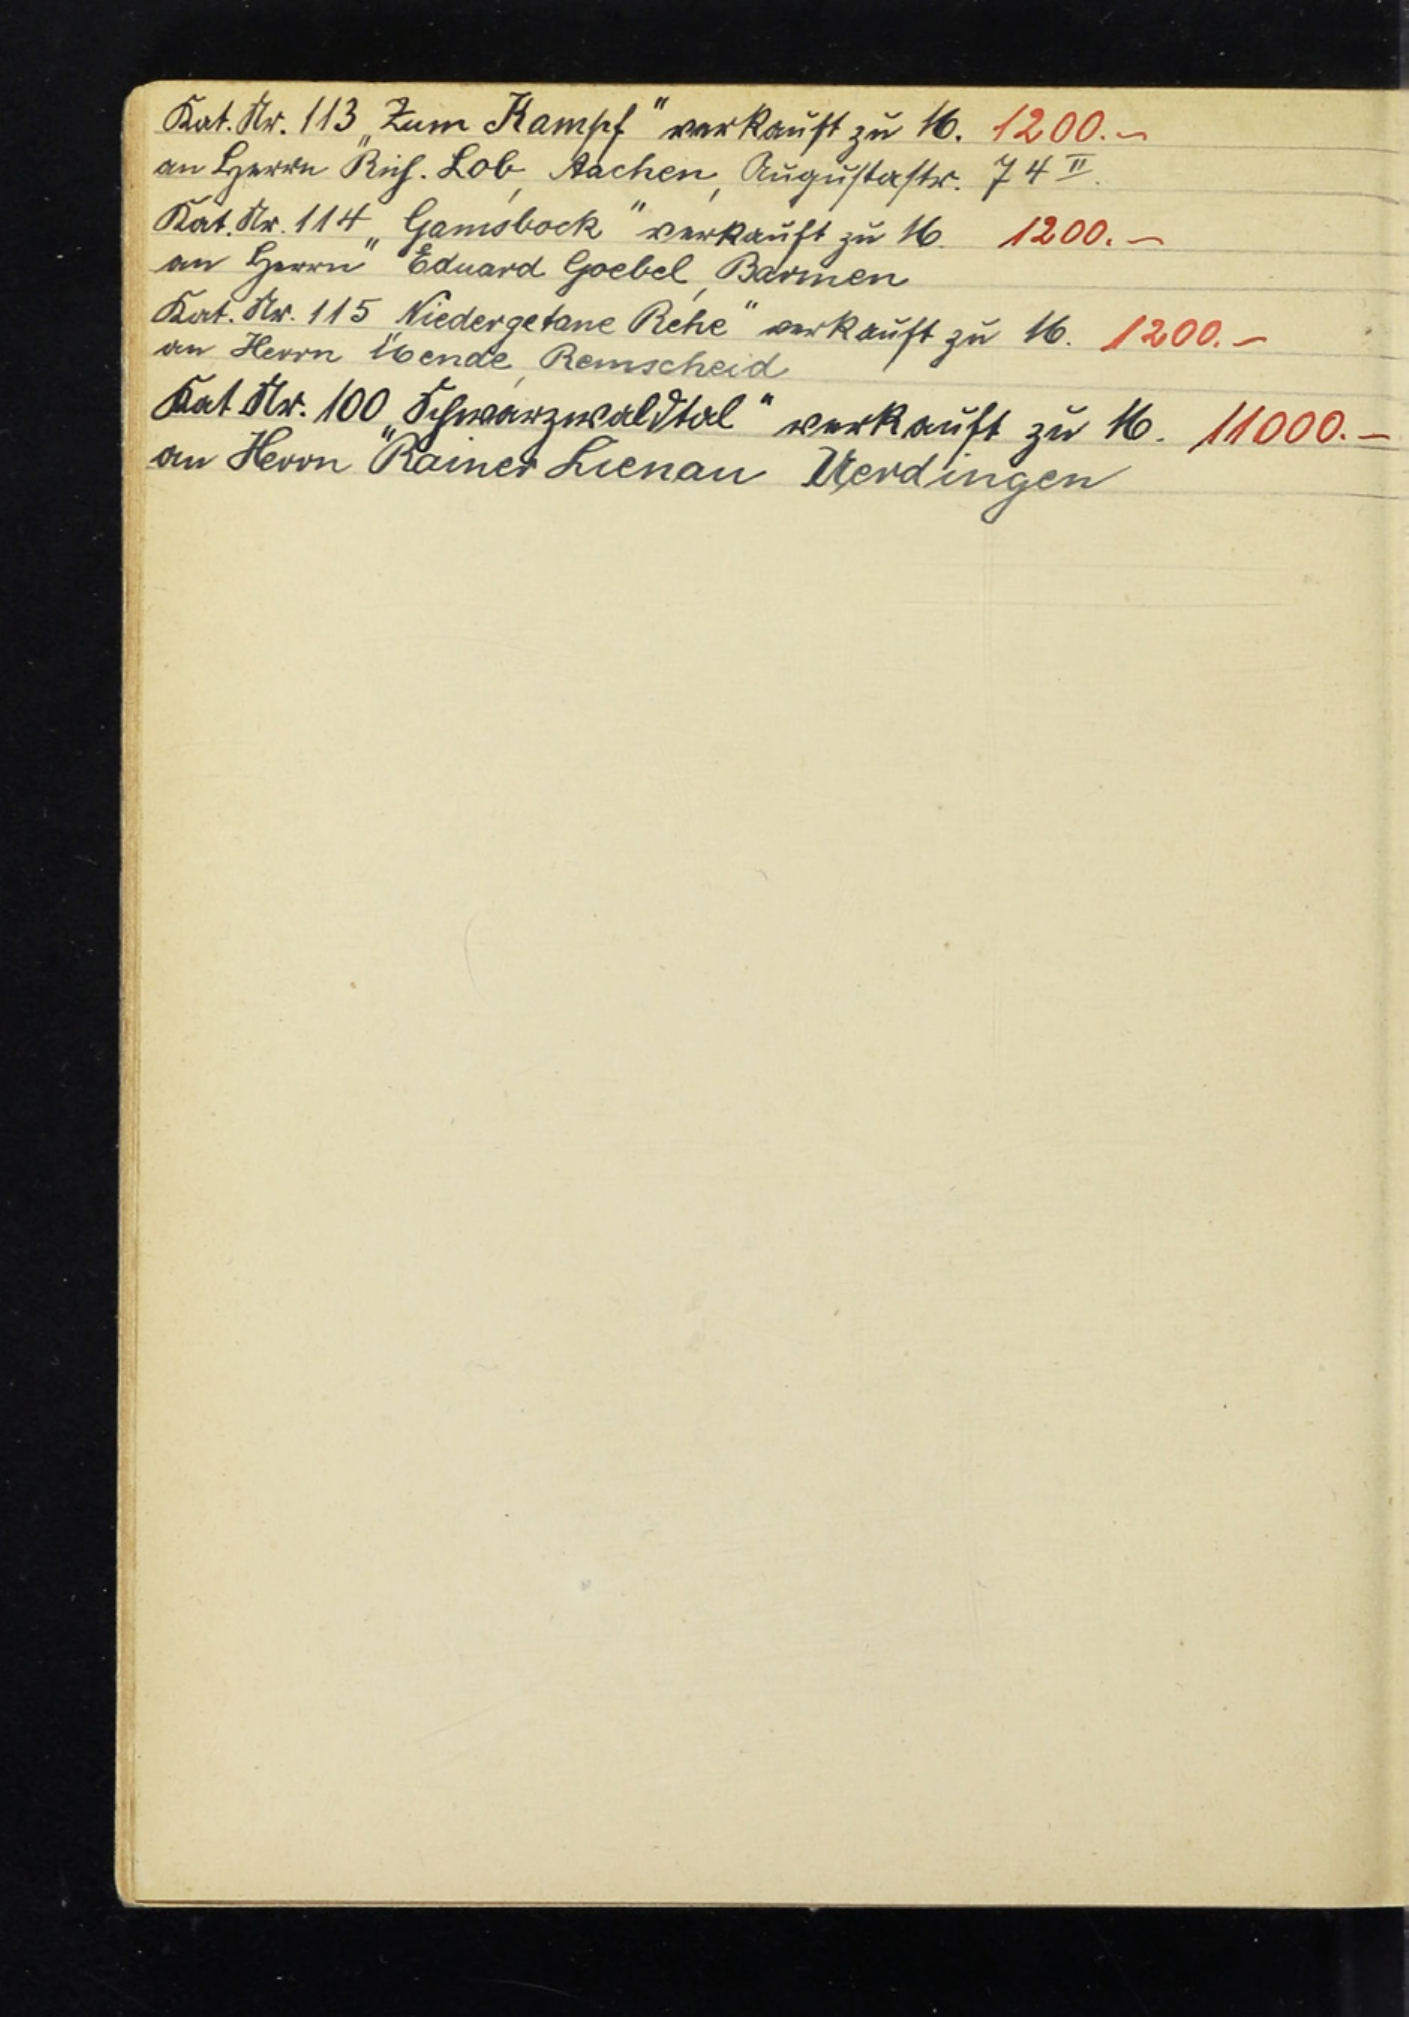 Kat. Nr. 113 „Zum Kampf“ verkauft zu M. 1200.–
an Herrn Rich. Lob, Aachen, Augustastr. 74 II.
Kat. Nr. 114 „Gamsbock“ verkauft zu M. 1200.–
an Herrn Eduard Goebel, Barmen
Kat. Nr. 115 „Niedergetane Rehe“ verkauft zu M. 1200.–
an Herrn Mende, Remscheid
Kat. Nr. 100 „Schwarzwaldtal“ verkauft zu M. 11000.–
an Herrn Rainer Lienau Uerdingen